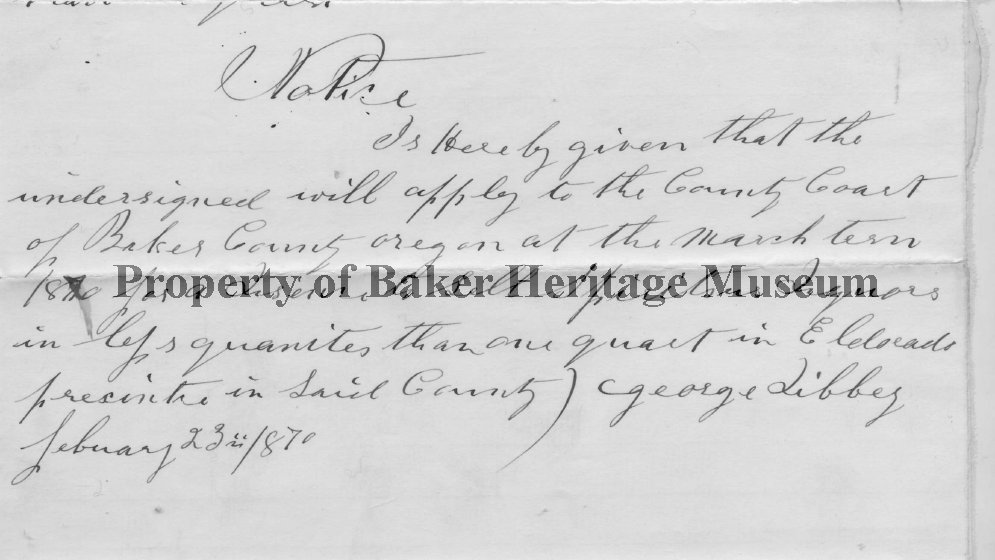 Notice
Is Hereby given that the
undersigned will apply to the County Coart
of Baker County oregon at the march tern
1870 for a to sell spiritous Liquors
Property of Baker Heritage Museum
in less quanites than one quart in Eldorado
precintre in said County) george Libbey
febuary 23 1870